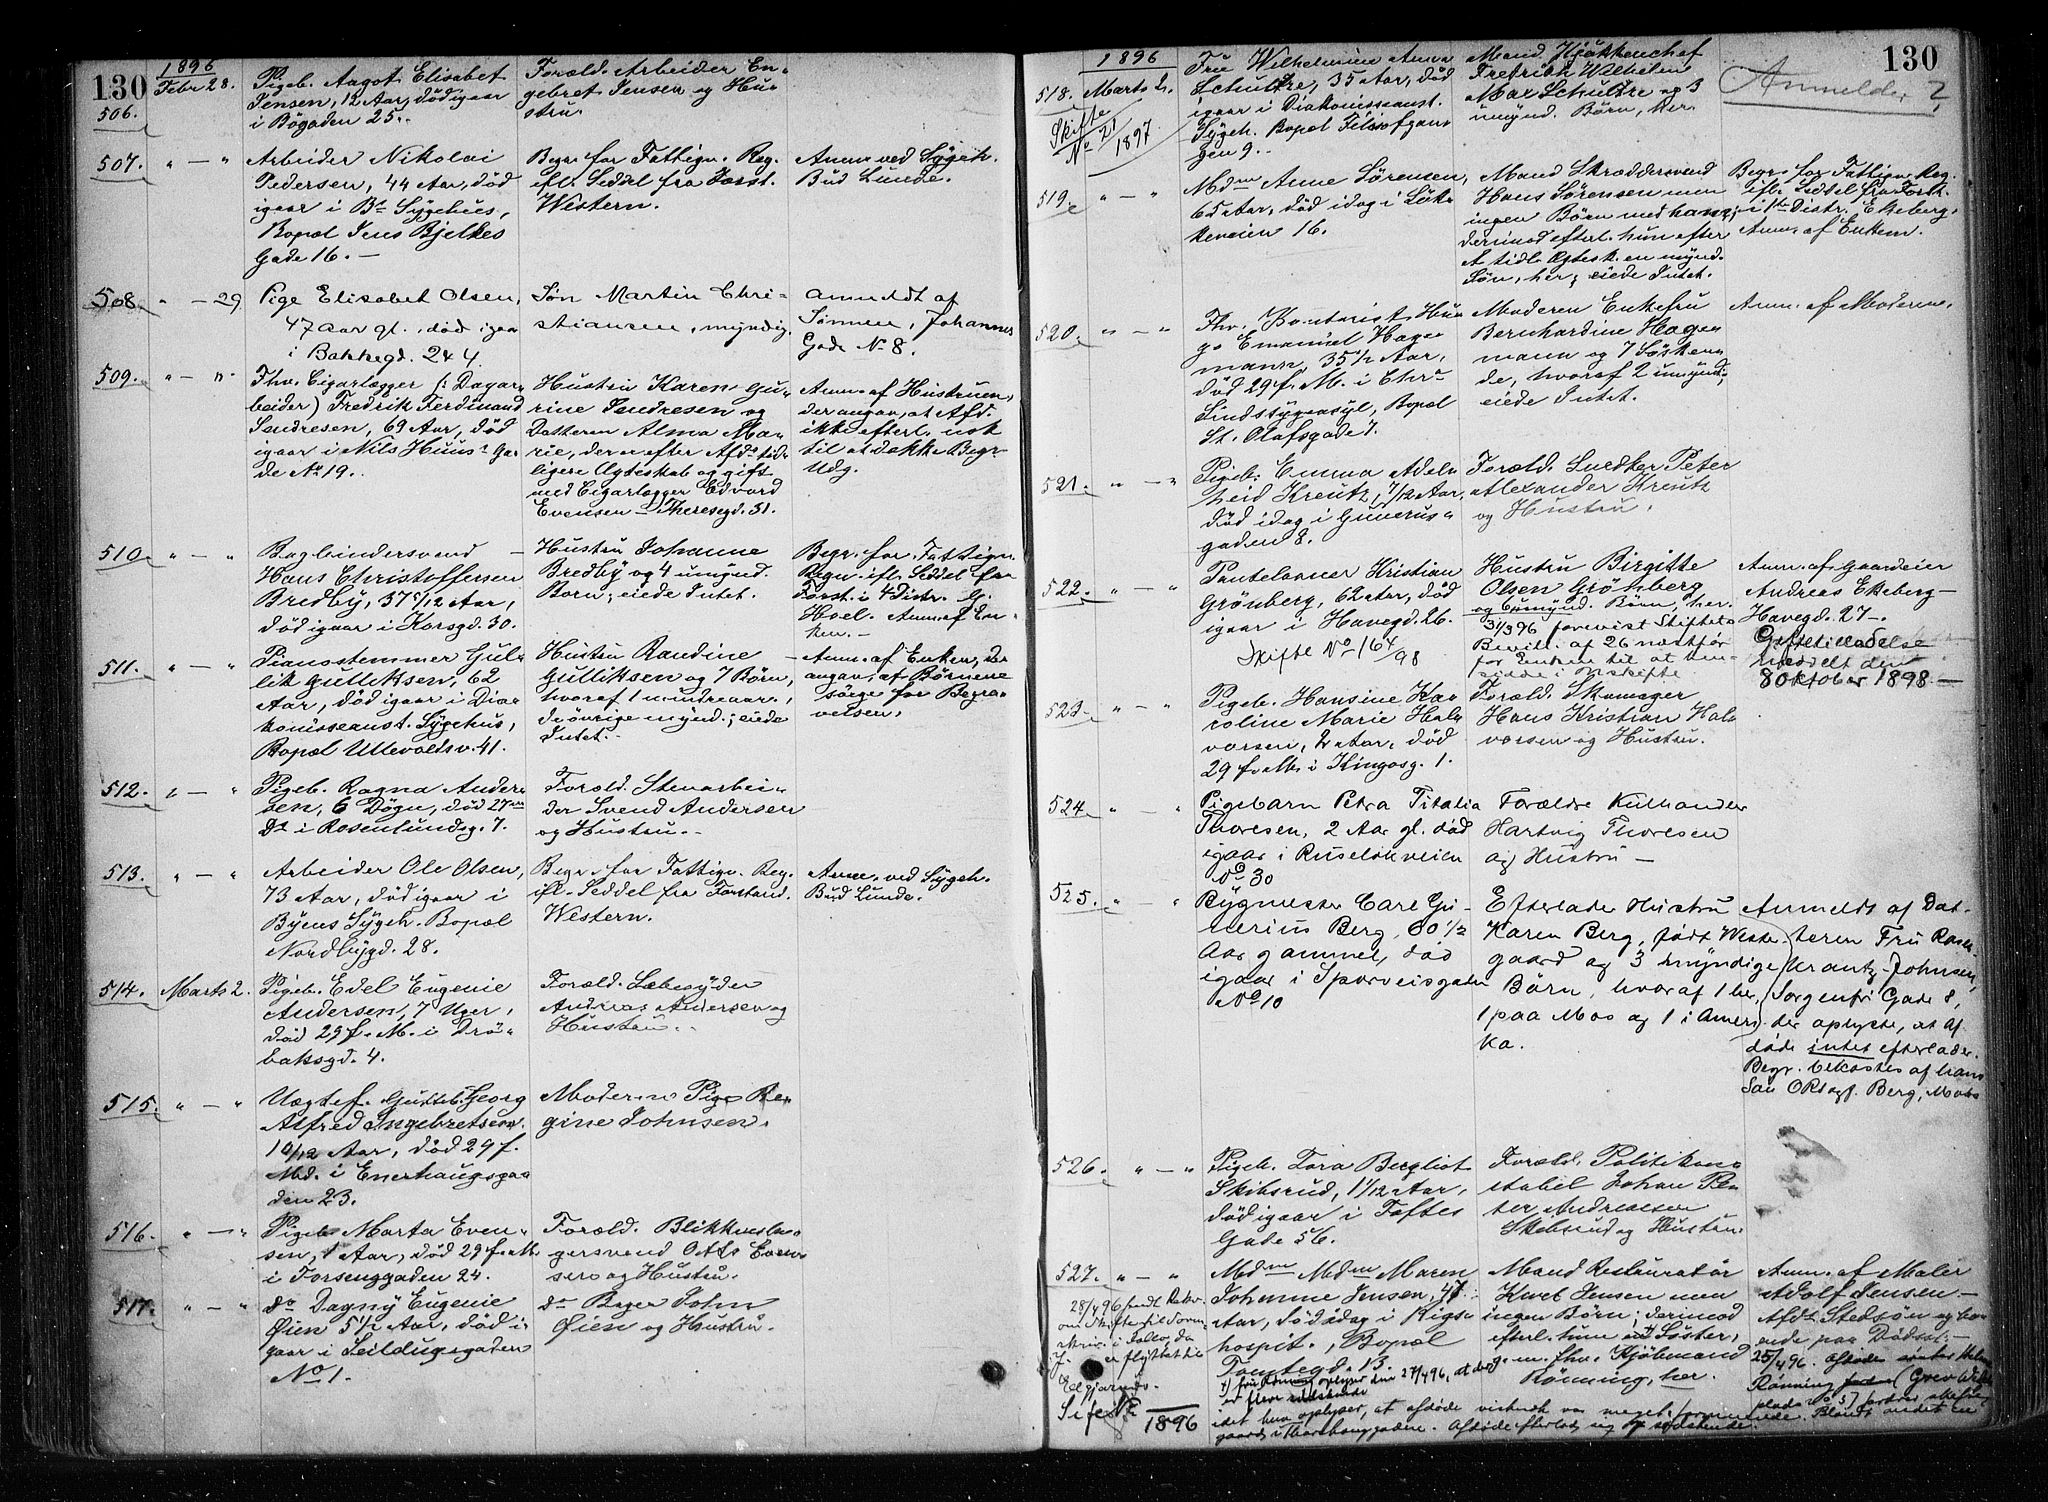 130
1896
506.
Febr 28.
Pigeb. Aagot Elisabet
Jensen, 12 Aar, død igaar
i Bøgaden 25.
Foræld. Arbeider En-
gebret Jensen og Hu-
stru.
507.
" — "
Arbeider Nikolai
Pedersen, 44 Aar, død
igaar i Bs Sygehus,
Bopæl Jens Bjelkes
Gade 16. —
Begr. for Fattigv. Reg.
ifl. Seddel fra Forst.
Western.
Anm. ved Sygeh.
Bud Lunde.
508.
" — 29.
Pige Elisabet Olsen,
47 aar gl., død igaar
i Bakkegd. 24.
Søn Martin Chri-
stiansen, myndig.
Anmeldt af
Sønnen, Johannes
Gade No 8.
509.
" — "
Fhv. Cigarlægger (: Dagar-
beider) Fredrik Ferdinand
Sendresen, 69 Aar, død
igaar i Nils Huus' Ga-
de No 19.
Hustru Karen Gu-
rine Sendresen og
Datteren Alma Ma-
rie, der er efter Afd. tid-
ligere Ægteskab og gift
med Cigarlægger Edvard
Evensen — Theresegd. 31.
Anm. af Hustruen,
der angav, at Afd.
ikke efterl. nok
til at dække Begr.
Udg.
510.
" — "
Bogbindersvend —
Hans Christoffersen
Bredby, 37 5/12 Aar,
død igaar i Korsgd. 30.
Hustru Johanne
Bredby og 4 umynd.
Børn; eiede Intet.
Begr. for Fattigv.
Regn. ifl. Seddel fra
Forst. i 4 Distr. G.
Hoel. Anm. af En-
ken. —
511.
" — "
Pianostemmer Gul-
lik Gulliksen, 62
Aar, død igaar i Dia-
konisseanst. Sygehus,
Bopæl Ullevoldsv. 41.
Hustru Randine —
Gulliksen og 7 Børn,
hvoraf 1 mindreaar.,
de øvrige mynd.; eiede
Intet. —
Anm. af Enken, der
angav, at Børnene
sørge for Begra-
velsen.
512.
" — "
Pigeb. Ragna Ander-
sen, 6 Døgn, død 27de
ds i Rosenlundsg. 7.
Foræld. Stenarbei-
der Svend Andersen
og Hustru. —
513.
" — "
Arbeider Ole Olsen,
73 Aar, død igaar i
Byens Sygeh. Bopæl
Nordbygd. 28.
Begr. for Fattigv. Reg.
ifl. Seddel fra Forstand.
Western.
Anm. ved Sygeh.
Bud Lunde.
514.
Marts 2.
Pigeb. Edel Eugenie
Andersen, 7 Uger,
død 29 f. M. i Drø-
baksgd. 4.
Foræld. Læbesyder
Andreas Andersen og
Hustru.
515.
" — "
Uægtef. Gutteb. Georg
Alfred Ingebretsen,
10/12 Aar, død 29 f.
Md. i Enerhaugsga-
den 23.
Moderen Pige Re-
gine Johnsen.
516.
" — "
Pigeb. Marta Even-
sen, 1 Aar, død 29 f. M.
i Forsenggaden 24.
Foræld. Blikkensla-
gersvend Otto Even-
sen og Hustru.
517.
" — "
do Dagny Eugenie
Øien 5 1/2 Aar, død i-
gaar i Seildugsgaden
No 1.
do Bager John
Øien og Hustru.
130
1896
Anmelder ?
518.
Marts 2.
Skifte
No 21
1897
Fru Wilhelmine Anna
Schultze, 35 Aar, død
igaar i Diakonisseanst.
Sygeh. Bopæl Pilestrædet
gen 9.
Mand Kjøkkenchef
Fredrich Wilhelm
Max Schultze og 3
umynd. Børn, her.
519.
" — "
Mdm Anne Sørensen,
65 Aar, død idag i Løk-
keveien 16.
Mand Skræddersvend
Hans Sørensen men
ingen Børn med ham;
derimod efterl. hun efter
et tidl. Ægtesk. en mynd.
Søn, her; eiede Intet.
Begr. for Fattigv. Reg.
ifl. Seddel fra Forst.
i 1ste Distr. Ekeberg.
Anm. af Enkem.
520.
" — "
Fhv. Kontorist Hu-
go Emanuel Hage-
mann, 35 1/2 Aar,
død 29 f. M. i Chr.
Sindssygeasyl, Bopæl
St. Olafsgade 7.
Moderen Enkefru
Bernhardine Hage-
mann og 7 Søsken-
de, hvoraf 2 umynd.;
eiede Intet.
Anm. af Moderen.
521.
" — "
Pigeb. Emma Adel-
heid Kreutz, 7/12 Aar,
død idag i Gunerus-
gaden 8.
Foræld. Snedker Peter
Alexander Kreutz
og Hustru.
522.
" — "
Pantelaaner Kristian
Grönberg, 62 Aar, død
igaar i Havegd. 26.
Skifte No 164/98
Hustru Birgitte
Olsen Grönberg
og 6 umynd. Børn, her.
31/3 96 forevist Skiftets
Bevill. af 26 næstfør
for Enken til at hen-
sidde i uskifte
Anm. af Gaardeier
Andreas Ekeberg —
Havegd. 27 —.
Giftetilladelse
meddelt den
8 Oktober 1898 —
523.
" — "
Pigeb. Hansine Ka-
roline Marie Hal-
vorsen, 2 Aar, død
29 f. M. i Kingosg. 1.
Foræld. Skomager
Hans Kristian Hal-
vorsen og Hustru.
524.
" "
Pigebarn Petra Titalia
Thoresen, 2 Aar gl. død
igaar i Ruseløkveien
No 30
Forældre Kulhandler
Hartvig Thoresen
og Hustru —
525.
" — "
Bygmester Carl Gu-
nerius Berg, 60 1/2
Aar gammel, død
igaar i Sporveisgaden
No 10
Efterlader Hustru
Karen Berg, født Weste-
gaard og 3 myndige
Børn, hvoraf 1 her,
1 paa Mos og 1 i Ameri-
ka.
Anmeldt af Dat-
teren Fru Rosen-
krantz-Johnsen,
Sorgenfri Gade 8,
der oplyste, at Af-
døde intet efterlader.
Begr. bekostes af hans
Søn O. Berg, Moss
526.
" — "
Pigeb. Tora Bergliot
Skibsrud, 1 1/12 Aar,
død igaar i Toftes
Gade 56.
Foræld. Politikon-
stabel Johan Pe-
ter Andreasen
Skibsrud og Hustru.
527.
" — "
28/4 96 sendt
om Skifte til Soren-
skriv. i Follo, da
er flyttet til
1896
Mdm Mdm Maren
Johanne Jensen, 47
Aar, død idag i Rigs-
hospit., Bopæl
Tomtegd. 13.
Mand Restauratør
Kivet Jensen men
ingen Børn; derimod
efterl. hun en Søster,
g. m. fhv. Kjøbmand
Rønning, her.
Anm. af Maler
Adolf Jensen —
Afd. Stedsøn og bo-
ende paa Dødsst. —
25/4 96. Afdødes søster
Rønning
er flere søskende
at afdøde
Afdøde efterlod sig 7 søskende.